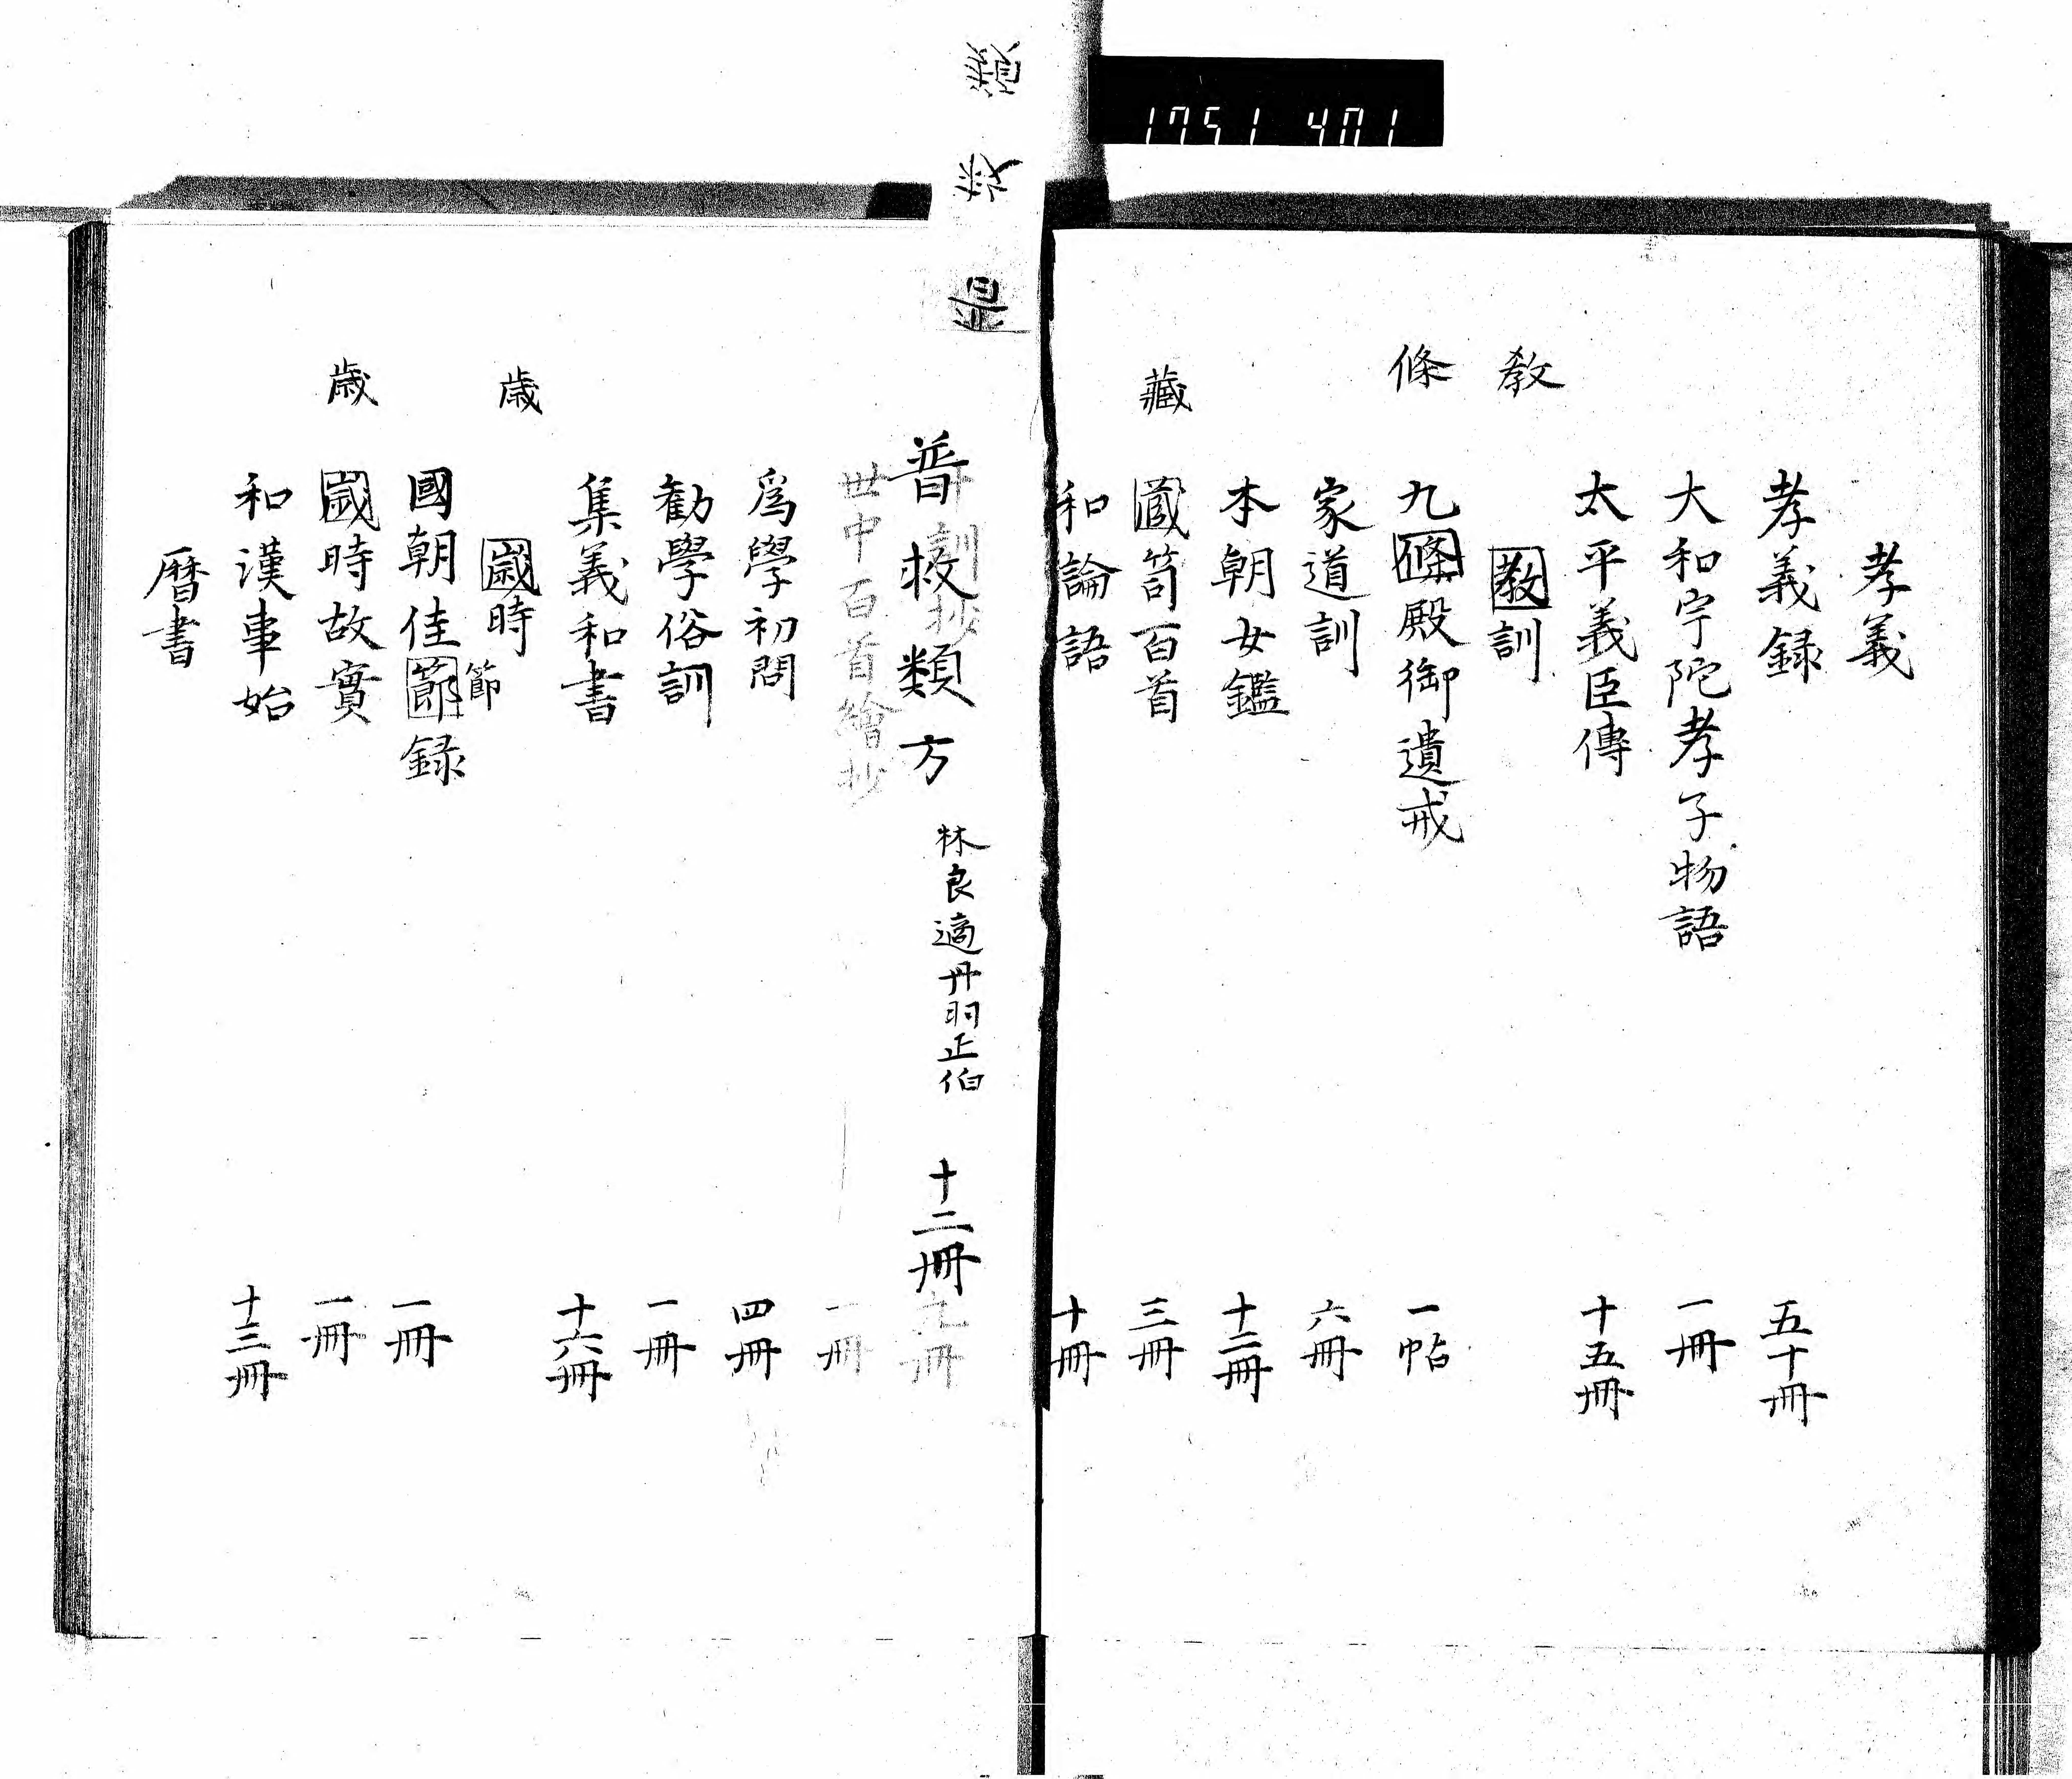 1751 401
孝義
孝義録
五十冊
大和宇陀孝子物語
一冊
太平義臣傳
十五冊
教
教訓
條
九條殿御遺戒
一帖
家道訓
六冊
本朝女鑑
十二冊
藏
蔵笥百首
三冊
和論語
十冊
普救類方
林良適丹羽正伯
十二冊
訓抄
九冊
世中百首繪抄
一冊
爲學初問
四冊
勧學俗訓
一冊
集義和書
十六冊
歳
歳時
節
國朝佳節録
一冊
歳
歳時故實
一冊
和漢事始
十三冊
暦書